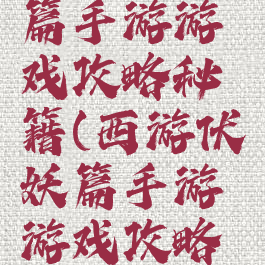 篇手游游
戏攻略秘
籍(西游伏
妖篇手游
游戏攻略